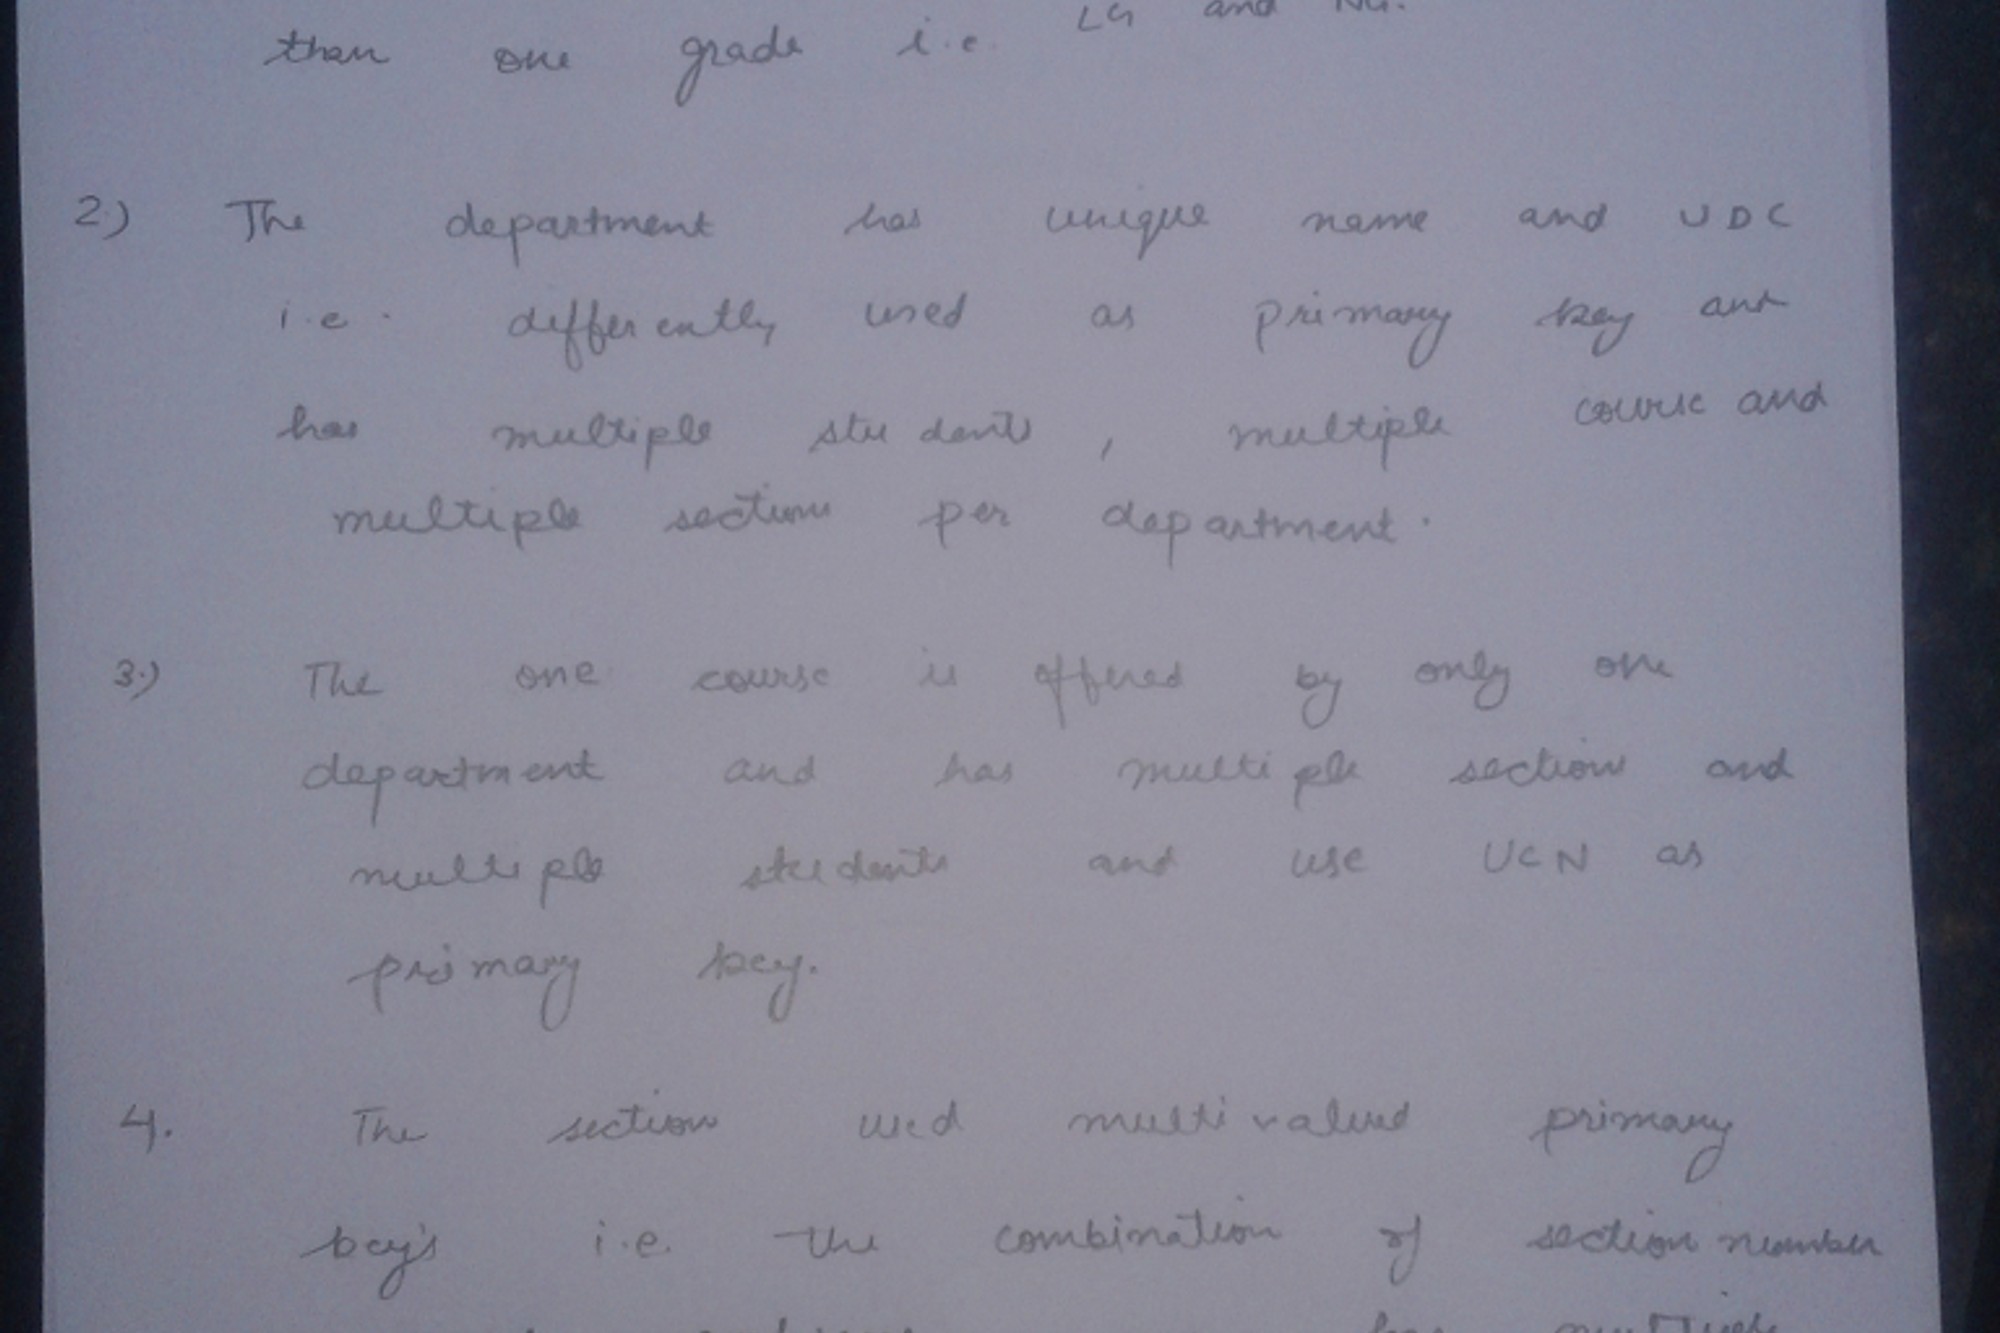 than one grade i.e. LG and NG.
2.) The department has unique name and UDC
i.e. differently used as primary key and
has multiple students, multiple course and
multiple section per department.
3.) The one course is offered by only one
department and has multiple section and
multiple students and use UCN as
primary key.
4. The section used multivalued primary
key's i.e. the combination of section number
has multiple